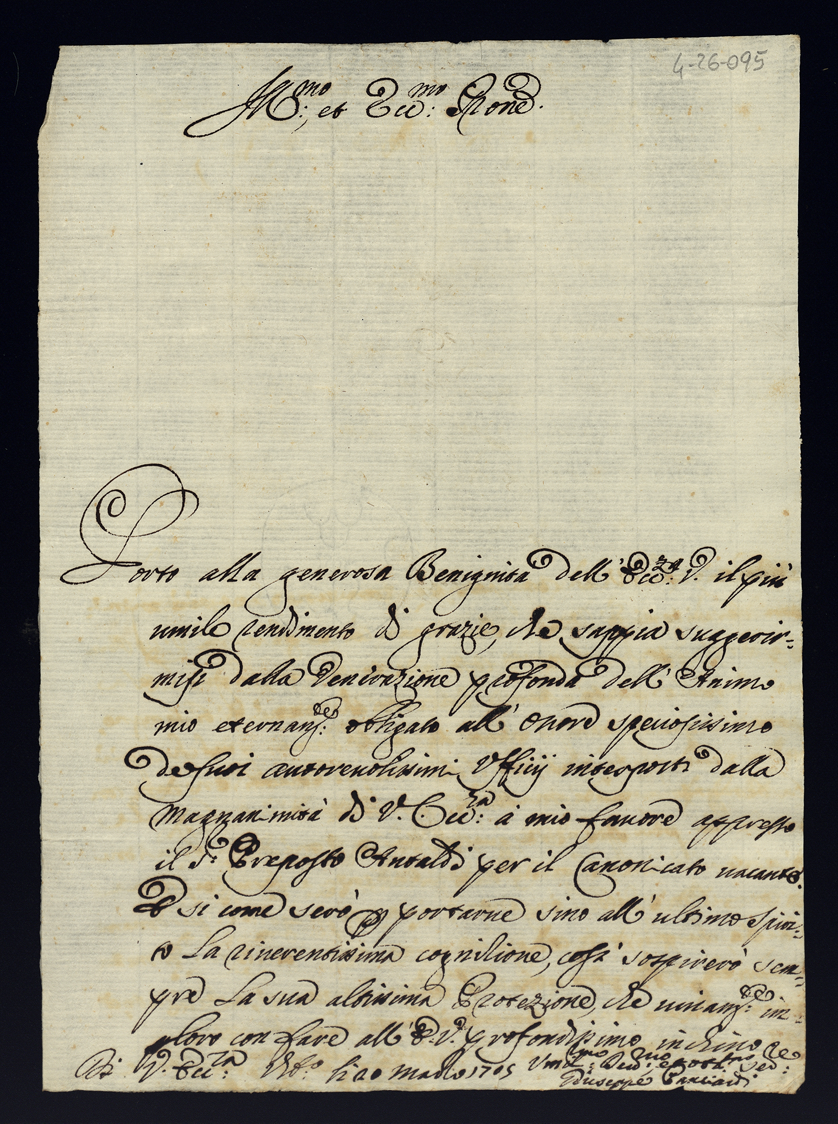 4-26-095
Ill:mo et Ecc:mo Prone
Porto alla generosa Benignità dell' Ecc:za V. il più
umile rendimento di grazie, che sappia suggerir-
misi dalla Venerazione profonda dell' Animo
mio eternam:te obligato all' onore speciosissimo
de suoi autorevolissimi Ufficij interposti dalla
magnanimità di V. Ecc:za à mio favore appresso
il S.r Preposto Antaldi per il Canonicato vacante.
E si come serò p portarne sino all' ultimo Spiri-
to La riverentissima cognitione, così sospirerò sem-
pre La sua altissima Protezione, che vivam:te im-
ploro con fare all' E. V. profondissimo inchino
Di V. Ecc:za Urb:o li 20 Marzo 1705 Um:mo Dev:mo et obb:mo Ser:re
Giuseppe